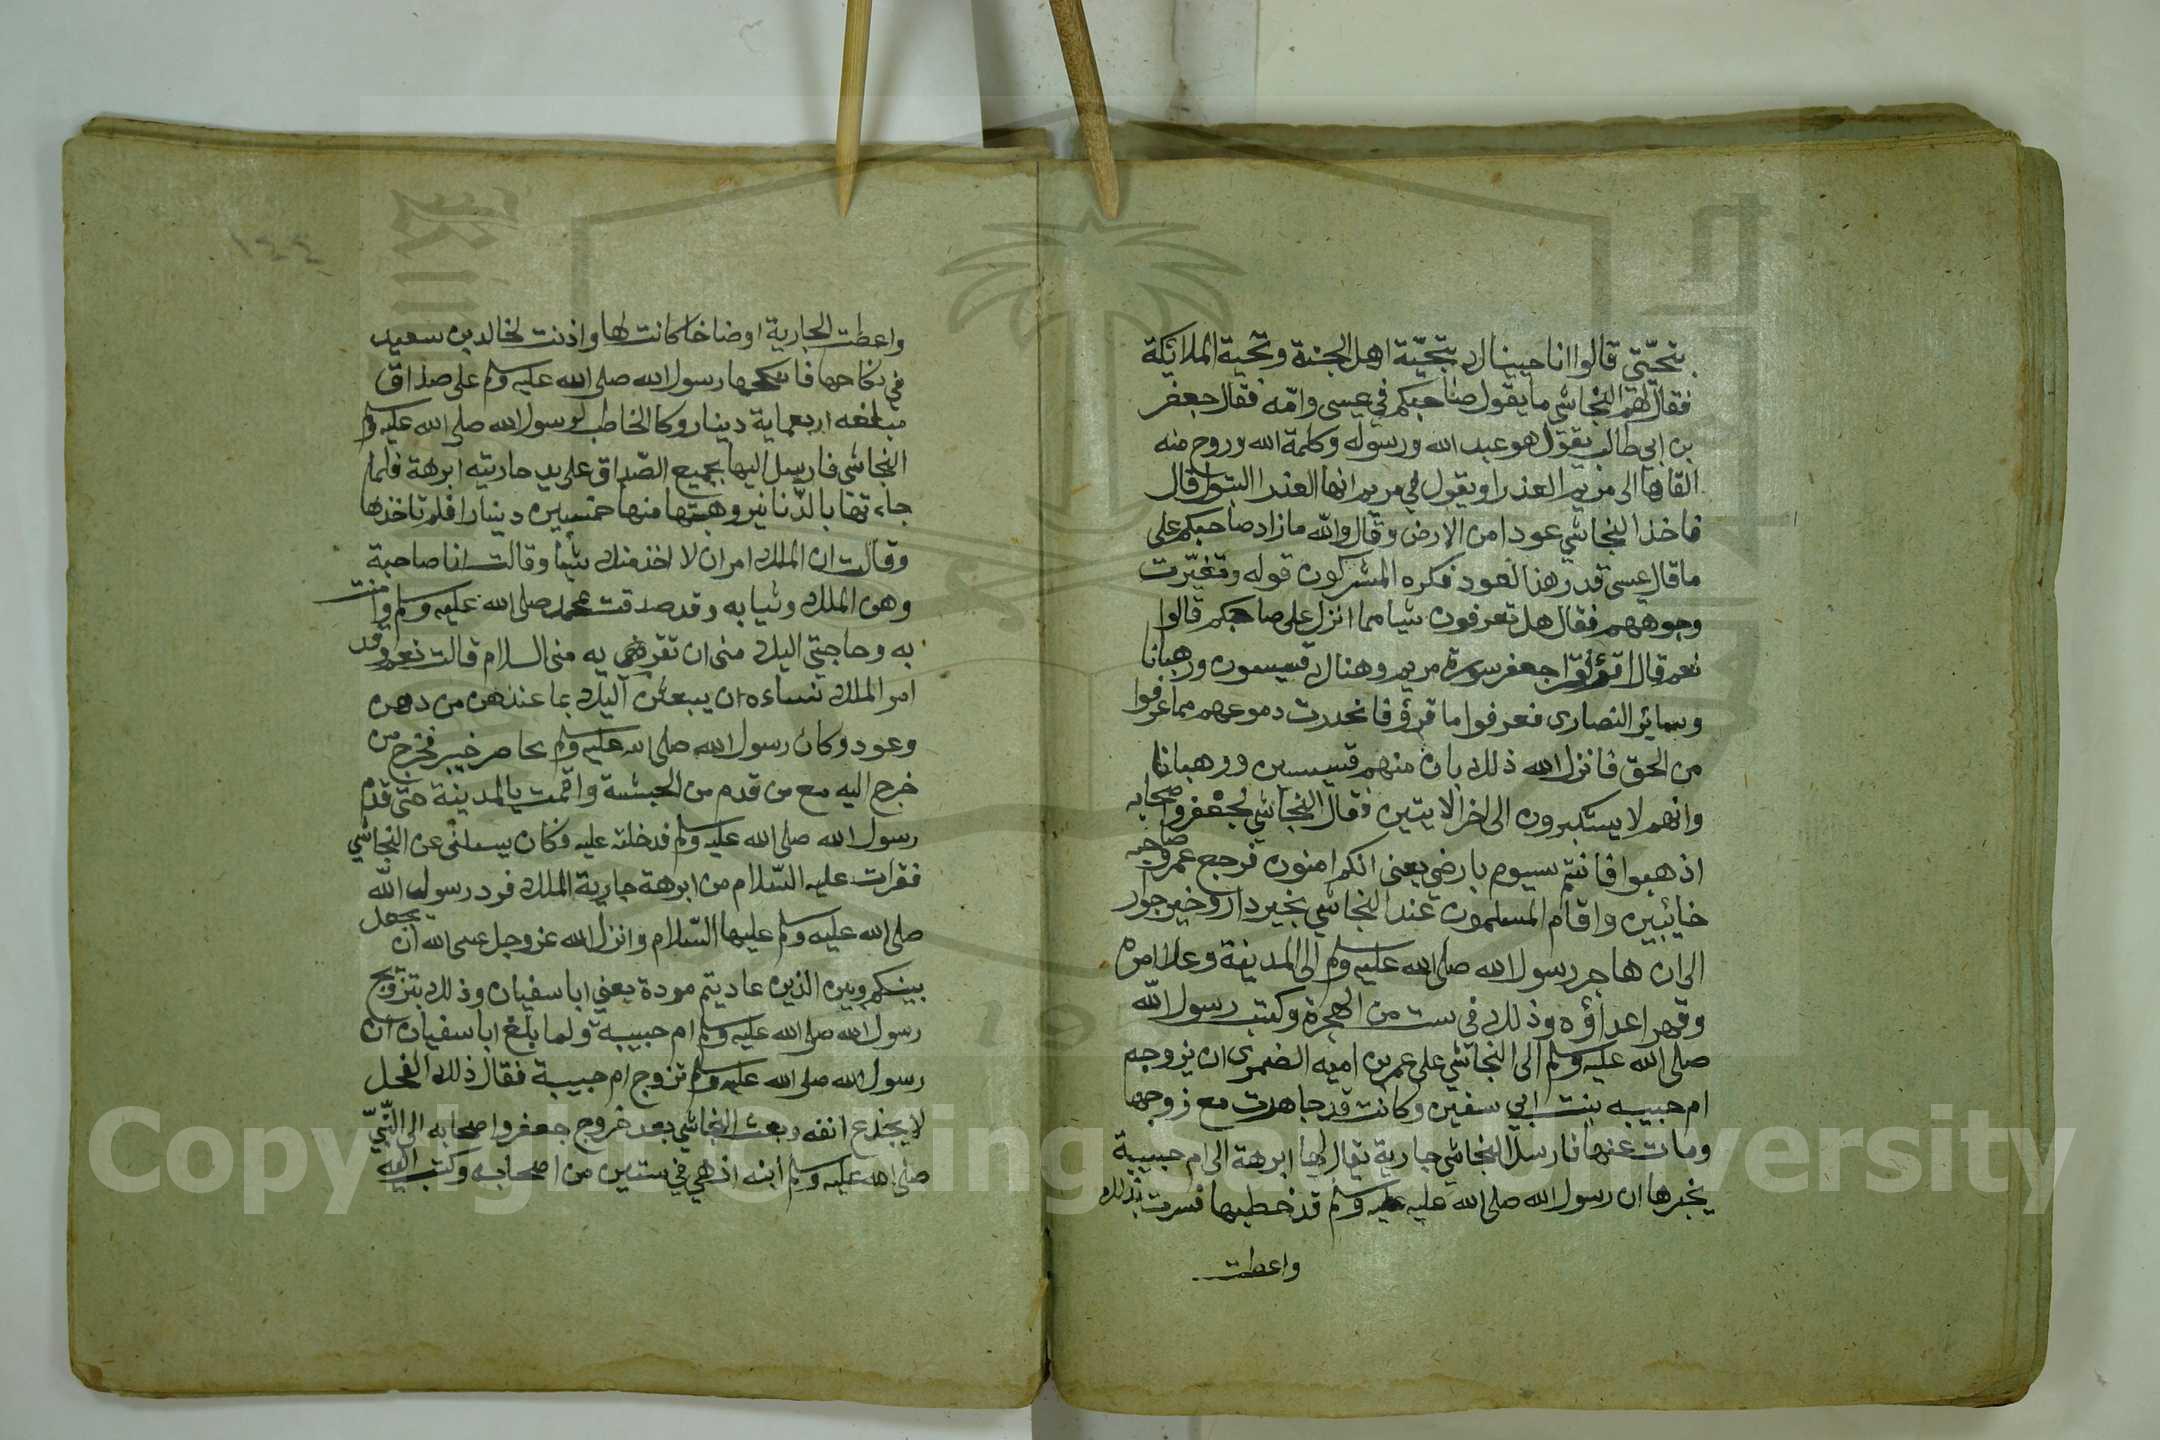 بتحيتي قالوا انا حييناك بتحية اهل الجنة وتحية الملائكة
فقال لهم النجاشي ما يقول صاحبكم في عيسى وامه فقال جعفر
بن ابي طالب يقول هو عبد الله ورسوله وكلمة الله وروح منه
القاها الى مريم العذرا ويقول في مريم انها العذرا البتول قال
فاخذ النجاشي عودا من الارض وقال والله ما زاد صاحبكم على
ما قال عيسى قدر هذا العود فكره المشركون قوله وتغيرت
وجوههم فقال هل تعرفون شيا مما انزل على صاحبكم قالوا
نعم قال اقرؤا فقرا جعفر سورة مريم وهناك قسيسون ورهبانا
وسائر النصارى فعرفوا ما قرؤ فانحدرت دموعهم مما عرفوا
من الحق فانزل الله ذلك بان منهم قسيسين ورهبانا
وانهم لا يستكبرون الى اخر الايتين فقال النجاشي لجعفر واصحابه
اذهبوا فانتم سيوم بارضي يعني انكم امنون فرجع عمرو وصاحبه
خائبين واقام المسلمون عند النجاشي بخير دار وخير جوار
الى ان هاجر رسول الله صلى الله عليه وسلم الى المدينة وعلا امره
وقهر اعداؤه وذلك في ست من الهجرة وكتب رسول الله
صلى الله عليه وسلم الى النجاشي على عمر بن اميه الضمري ان يزوجه
ام حبيبه بنت ابي سفين وكانت قد جاهدت مع زوجها
ومات عنها فارسل النجاشي جارية يقال لها ابرهة الى ام حبيبة
يخبرها ان رسول الله صلى الله عليه وسلم قد خطبها فسرت بذلك
واعطت
١٤٤
واعطت الجارية اوضاخا كانت لها واذنت لخالد بن سعيد
في نكاحها فانكحها رسول الله صلى الله عليه وسلم على صداق
مبلغه اربعماية دينار وكا الخاطب لرسول الله صلى الله عليه وسلم
النجاشي فارسل اليها بجميع الصداق على يد جاريته ابرهة فلما
جاءتها بالدنانير وهبتها منها خمسين دينارا فلم تاخذها
وقالت ان الملك امر ان لا اخذ منك شيا وقالت انا صاحبة
وهن الملك وثيابه وقد صدقت محمد صلى الله عليه وسلم وامنت
به وحاجتي اليك مني ان تقرئيه مني السلام قالت نعم وقد
امر الملك نساءه ان يبعثن اليك بما عندهن من دهن
وعود وكان رسول الله صلى الله عليه وسلم بحاصر خيبر فخرج من
خرج اليه مع من قدم من الحبشة واقمت بالمدينة حتى قدم
رسول الله صلى الله عليه وسلم فدخلت عليه فكان يسالني عن النجاشي
فقرات عليه السلام من ابرهة جارية الملك فرد رسول الله
صلى الله عليه وسلم عليها السلام وانزل الله عز وجل عسى الله ان يجعل
بينكم وبين الذين عاديتم مودة يعني ابا سفيان وذلك بتزويج
رسول الله صلى الله عليه وسلم ام حبيبة ولما بلغ ابا سفيان ان
رسول الله صلى الله عليه وسلم تزوج ام حبيبة فقال ذلك الفحل
لا يجذع انفه وبعث النجاشي بعد خروج جعفر واصحابه الى النبي
صلى الله عليه وسلم ابنه ازهي في ستين من اصحابه وكتب اليه
Copyright © King Saud University